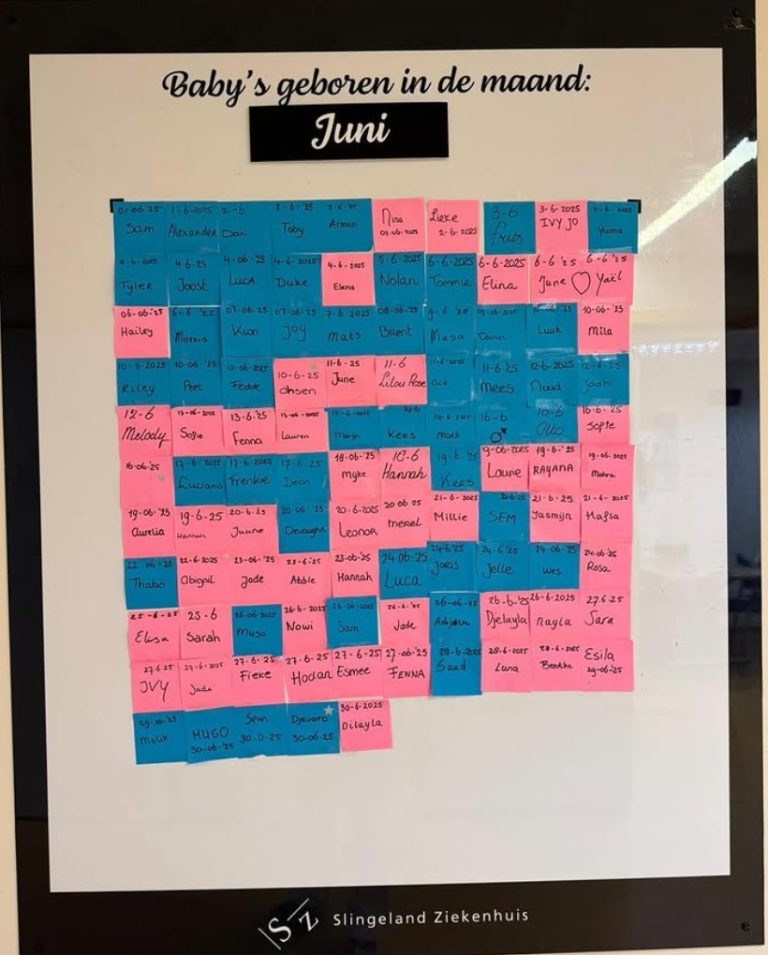 Baby's geboren in de maand:
Juni
01.06.25 Sam
1-6-2025 Alexander
2-6 Dan
2-6-'25 Toby
2-6-'25 Arman
Nina 02-06-2025
Lieke 2-6-2025
3-6
3-6-2025 IVY JO
Yuma
Tyler
4-6-25 Joost
4-06-25 Luca
4-6-2025 Duke
4-6-2025 Elena
5-6-2025 Nolan
6-6-2025 Tommie
6-6-2025 Elina
6-6 '25 June
6-6 '25 Yaël
06-06-'25 Hailey
6-6-'25
07-06-25 Kian
07-06-25 Joy
7-6-2025 Mats
08-06-2025 Brent
9-6-'25 Musa
Luuk
10-06-'25 Mila
10.6.2025 Riley
10-06-'25 Peet
10-06-'25 Fedde
10-6-25
11-6-25 June
11-6 Lilou Rose
11.6.25 Mees
12-6-2025 Noud
12-6-25 Joah
12-6 Melody
13-06-2025 Sofie
13-6-'25 Fenna
13-06-2025 Lauren
Kees
14-6-2025
16-6 ♂
16-6 Otto
16-6-'25 Sofie
16-06-'25
17-6-2025 Luciano
17-6-2025 Frenkie
17-6-25 Dean
18-06-'25 Myke
18-6 Hannah
19-6-'25 Kees
Laure
19-6-'25 RAYANA
19-06-2025
19-06-'25 Aurelia
19-6-25 Hannah
20-6-25 Juune
20-06-'25
20-6-2025 Leonor
20 06 25 Merel
21-6-2025 Millie
SEM
21-6-25 Yasmijn
21-6-25 Hafsa
22-06-'25 Thabo
22-6-2025 Abigail
23-06-'25 Jade
23-6-'25 Abbie
23-06-'25 Hannah
24-06-25 Luca
24.6.'25 Joris
24-6-'25 Jelle
24-06-'25 Wes
24-06-'25 Rosa
25-6-25 Elisa
25-6 Sarah
26-06-2025 Musa
26-6-2025 Nowi
26-06-'25 Sam
26-6-'25 Jade
26-06-25
26-6-'25 Djelayla
26-6-2025 Nayla
27.6.25 Sara
27.6.25 IVY
27-6-2025 Jade
27-6-'25 Fieke
27-6-25 Hodan
27-6-25 Esmee
27-06-'25 FENNA
28-6-2025
28-6-2025 Luna
28-6-2025 Benthe
Esila 29-06-'25
29-06-'25
HUGO 30-06-'25
Sem 30-6-25
Djavaro 30-06-25
30-6-2025 Dilayla
SZ Slingeland Ziekenhuis